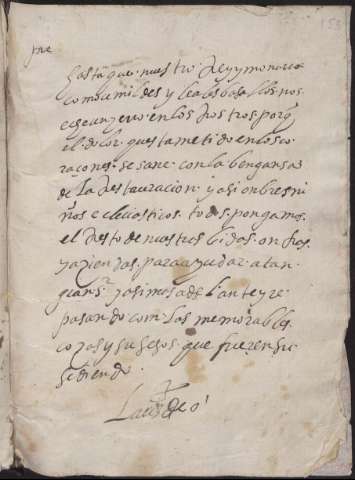 hasta que nuestro Rey y monarca
como umildes y leales basallos nos
eche un yerro en los Rostros porq
el dolor questa metido en los co
raçones se sane con la bengansa
de la Restauracion y asi onbres ni
ños eclesiasticos todos pongamos
el Resto de nuestras bidas onras
y aziendas para ayudar a tan
gran y asi mas adelante yre
pasando con las memorables
cosas y susesos que fueren su
sediendo
Laus deo